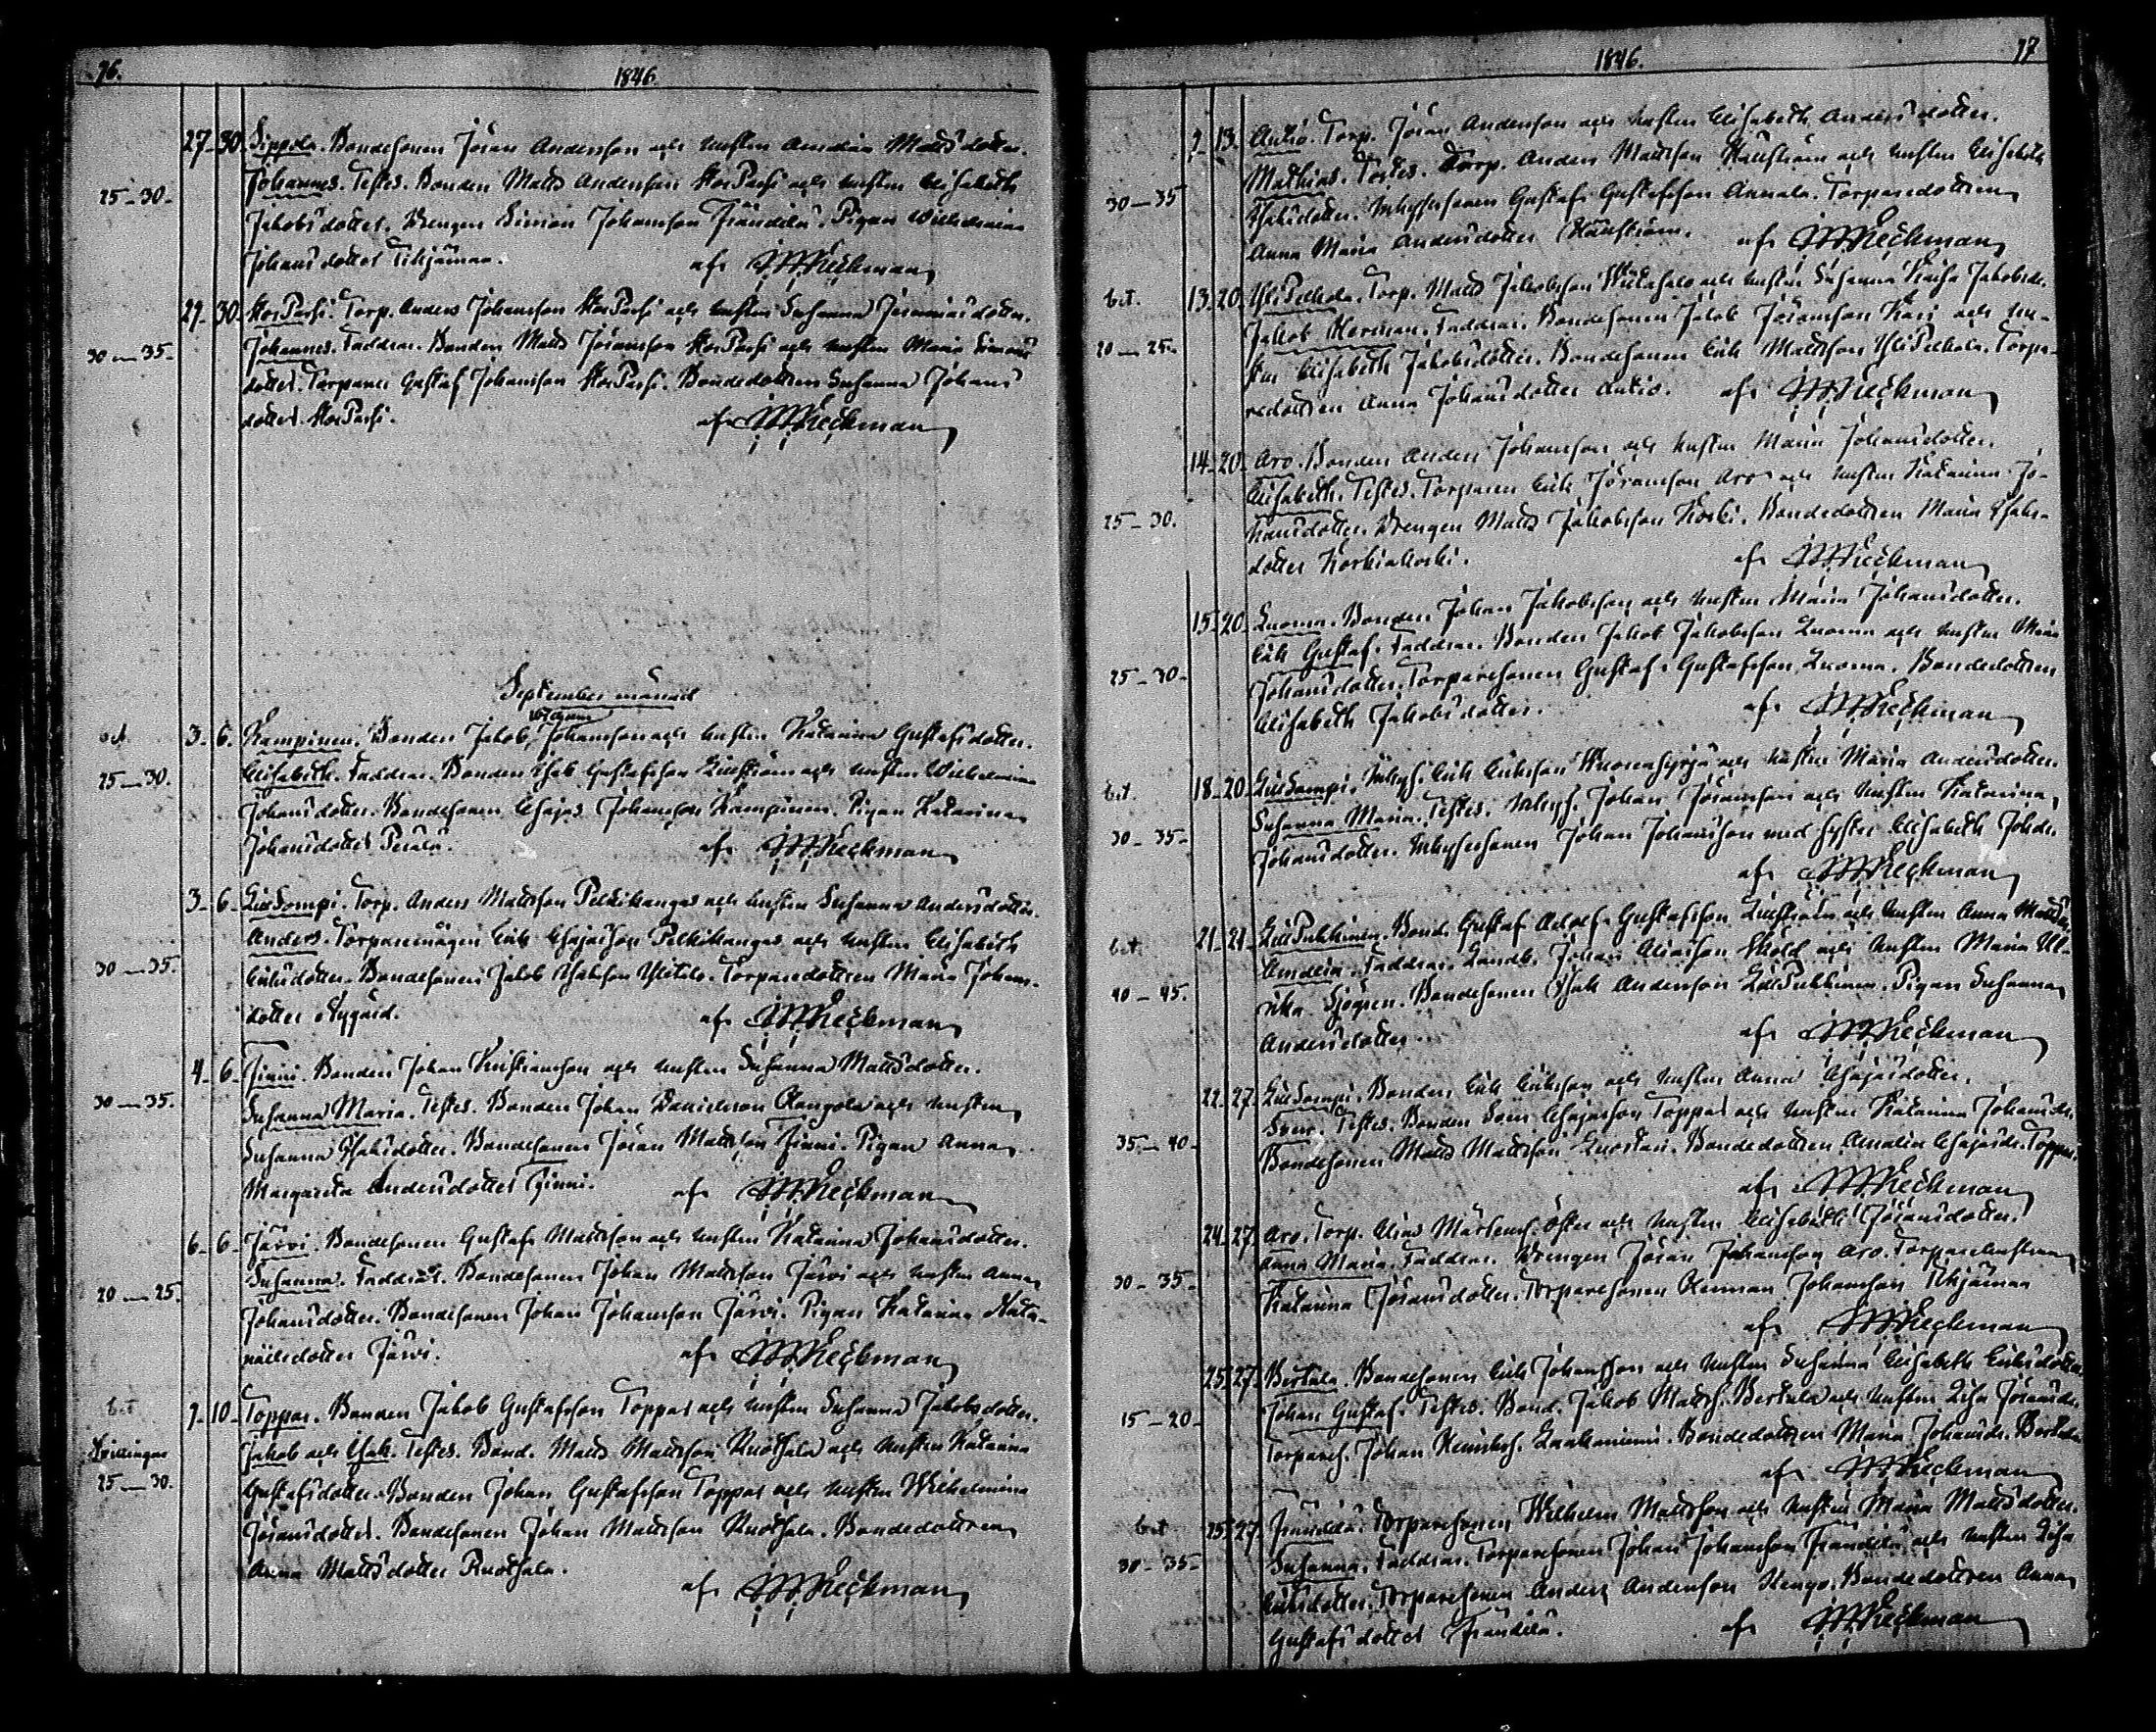 76.
1846.
27-30. Sippola. Bondesonen Jöran Andersson och hustru Amalia Mattsdotter.
Johannes. Testes. Bonden Matts Andersson StorPassi och hustru Elisabeth
25-30.
Jakobsdotter. Drengen Simon Johansson Frändilä. Pigan Wilhelmina
Johansdotter Tihjämaa. af JMKeckman
29-30. StorPassi. Torp. Anders Johansson StorPassi och hustru Susanna Jeremiasdotter.
30-35.
Johannes. Faddrar. Bonden Matts Jöransson StorPassi och hustru Maria Simons
dotter. Torparen Gustaf Johansson StorPassi. Bondedottren Susanna Johans
dotter StorPassi. af JMKeckman
September månad
3-6. Kampinen. Bonden Jakob Johansson och hustru Katarina Gustafsdotter.
25-30.
Elisabeth. Faddrar. Bonden Isak Gustafsson Lillström och hustru Wilhelmina
Johansdotter. Bondesonen Esajas Johansson Kampinen. Pigan Katarina
Johansdotter Perälä. af JMKeckman
3-6. LillSompi. Torp. Anders Mattsson Peltikangas och hustru Susanna Andersdotter.
Anders. Torparemågen Erik Esajasson Peltikangas och hustru Elisabeth
30-35.
Eriksdotter. Bondesonen Jakob Isaksson Ylitalo. Torparedottren Maria Johans-
dotter Nygård. af JMKeckman
4-6. Finni. Bonden Johan Kristiansson och hustru Susanna Mattsdotter.
30-35.
Susanna Maria. Testes. Bonden Johan Danielsson Rangola och hustru
Susanna Isaksdotter. Bondesonen Jöran Mattsson Finni. Pigan Anna
Margareta Andersdotter Finni. af JMKeckman
6-6. Järvi. Bondesonen Gustaf Mattsson och hustru Katarina Johansdotter.
20-25.
Susanna. Faddrar. Bondesonen Johan Mattsson Järvi och hustru Anna
Johansdotter. Bondesonen Johan Johansson Järvi. Pigan Katarina Nata-
naelsdotter Järvi. af JMKeckman
bet
7-10. Toppar. Bonden Jakob Gustafsson Toppar och hustru Susanna Jakobsdotter.
Tvillingar
25-30.
Jakob och Isak. Testes. Bond. Matts Mattsson Ruotsala och hustru Katarina
Gustafsdotter. Bonden Johan Gustafsson Toppar och hustru Wilhelmina
Jöransdotter. Bondesonen Johan Mattsson Ruotsala. Bondedottren
Anna Mattsdotter Ruotsala.
af JMKeckman
1846.
77
7-13. Autio. Torp. Jöran Andersson och hustru Elisabeth Andersdotter.
30-35
Mathias. Testes. Torp. Anders Mattsson Hällström och hustru Elisabeth
Isaksdotter. Inhysesonen Gustaf Gustafsson Annala. Torparedottren
Anna Maria Andersdotter Hällström. af JMKeckman
bet.
13-20. YliPelkola. Torp. Matts Jakobsson och hustru Susanna Kaisa Jakobsdr.
20-25.
Jakob Herman. Faddrar. Bondesonen Jakob Jöransson Kari och hu-
stru Elisabeth Jakobsdotter. Bondesonen Erik Mattsson YliPelkola. Torpa-
redottren Anna Johansdotter Autio. af JMKeckman
14-20. Aro. Bonden Anders Johansson och hustru Maria Johansdotter.
25-30.
Elisabeth. Testes. Torparen Erik Jöransson Aro och hustru Katarina Jo-
hansdotter. Drengen Matts Jakobsson Koski. Bondedottren Maria Isaks-
dotter Korkiakoski. af JMKeckman
15-20. Luoma. Bonden Johan Jakobsson och hustru Maria Johansdotter.
25-30.
Erik Gustaf. Faddrar. Bonden Jakob Jakobsson Luoma och hustru Maria
Johansdotter. Torparesonen Gustaf Gustafsson Luoma. Bondedottren
Elisabeth Jakobsdotter. af JMKeckman
bet.
18-20. LillSompi. Inhys. Erik Eriksson Wuorensyrjä och hustru Maria Andersdotter.
30-35.
Susanna Maria. Testes. Inhys. Johan Jöransson och hustru Katarina
Johansdotter. Inhysesonen Johan Johansson med syster Elisabeth Johdr.
af JMKeckman
bet.
21-21. LillPukkinen. Bond. Gustaf Adolf Gustafsson Lillström och hustru Anna Mattsdr.
40-45.
Amalia. Faddrar. Landb. Johan Eliasson Sköld och hustru Maria Ul-
rika Sjögren. Bondesonen Isak Andersson LillPukkinen. Pigan Susanna
Andersdotter. af JMKeckman
22-27. LillSompi. Bonden Erik Eriksson och hustru Anna Esajasdotter.
35-40.
Sven. Testes. Bonden Sven Esajasson Toppar och hustru Katarina Johansdr.
Bondesonen Matts Mattsson Luostari. Bondedottren Amalia Esajasdr. Toppar.
af JMKeckman
24-27. Aro. Torp. Elias Mårtens. Öster och hustru Elisabeth Jöransdotter.
30-35.
Anna Maria. Faddrar. Drengen Jöran Johansson Aro. Torparehustrun
Katarina Jöransdotter. Torparesonen Herman Johansson Tihjämaa
af JMKeckman
25-27. Bertula. Bondesonen Erik Johansson och hustru Susanna Elisabeth Eriksdotter.
15-20.
Johan Gustaf. Testes. Bond. Jakob Matts. Bertula och hustru Lisa Jöransdr.
Torpares. Johan Henriks. Laakaniemi. Bondedottren Maria Johansdr. Bertula
af JMKeckman
bet
25-27. Frändilä. Torparesonen Wilhelm Mattsson och hustru Maria Mattsdotter.
30-35.
Susanna. Faddrar. Torparesonen Johan Johansson Frändilä och hustru Lisa
Eriksdotter. Torparesonen Anders Andersson Kengo. Bondedottren Anna
Gustafsdotter Frändilä. af JMKeckman